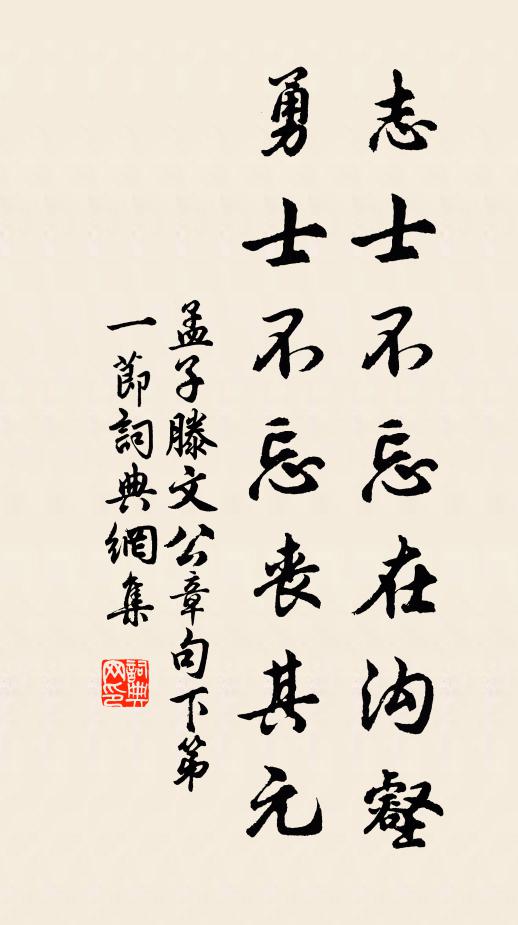 志士不忘在沟壑
勇士不忘丧其元
孟子滕文公章句下第
一節詞典網集
詞典网印